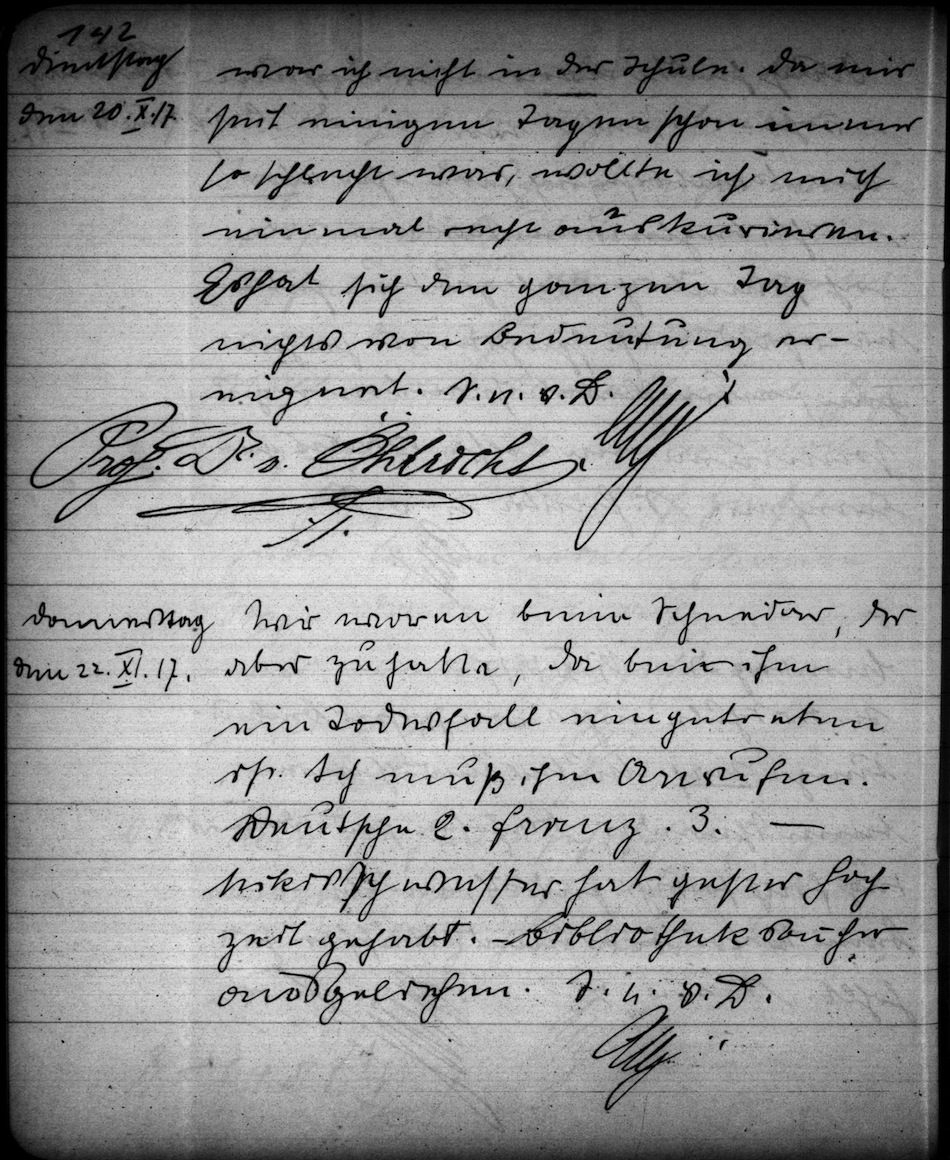 142
Dienstag
den 20. X. 17.
war ich nicht in der Schule. Da mir
seit einigen Tagen schon immer
so schlecht war, wollte ich mich
einmal recht auskurieren.
Es hat sich den ganzen Tag
nichts von Bedeutung er-
eignet. S. n. v. D.
Prof. Dr. v.
Donnerstag
den 22. XI. 17.
Wir waren beim Schneider, der
aber zu hatte, da bei ihm
ein Todesfall eingetreten
ist. Ich muß ihn Anrufen.
Deutsche 2. Franz. 3. —
schwester hat gester Hoch
zeit gehabt. – Bibliothek Bücher
ausgeliehen. S. n. v. D.